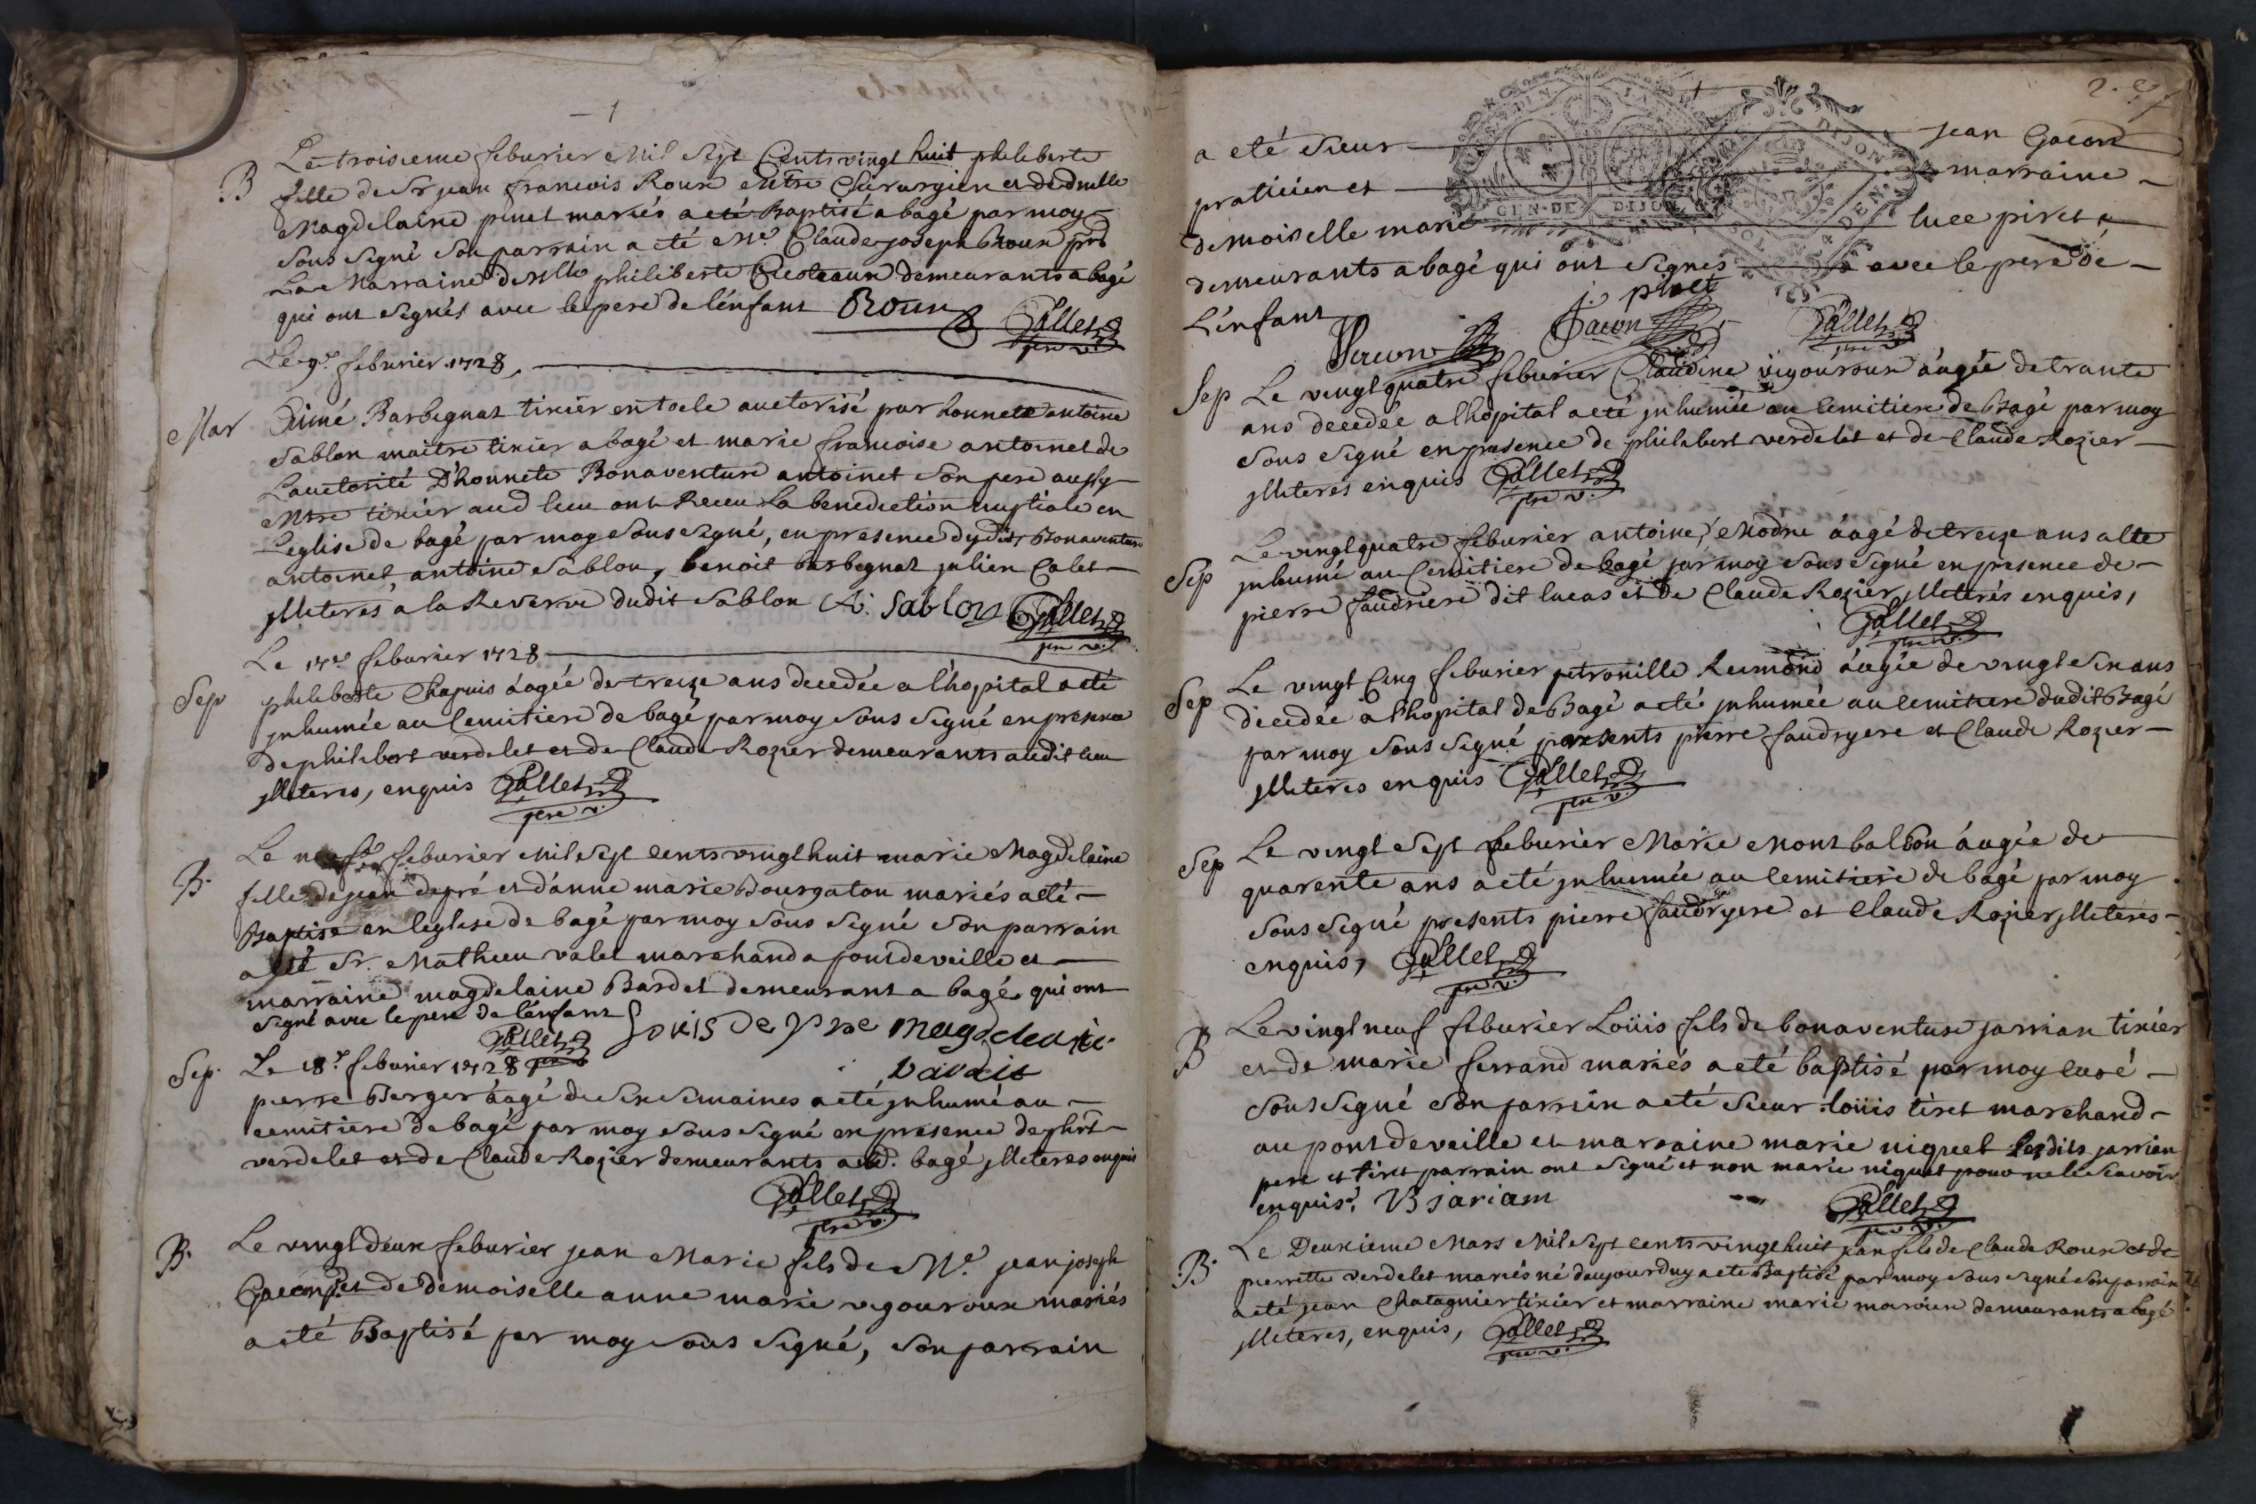 1
B
Le troisieme feburier Mil Sept Cents vingt huit philiberte
fille de Sr jean francois Roux Mtre Chirurgien et de dmlle
Magdelaine pinet mariés a eté Baptisé a bagé par moy
sous signé son parrain a eté Me. Claude joseph Roux
La Marraine dmlle philiberte demeurants a bagé
qui ont signés avec le pere de l'enfant Roux Pallet
pre v.
Le 9e. feburier 1728,
Mar
Aimé Barbegnat tixier en toele auctorisé par honnete antoine
Sablon maitre tixier a bagé et marie francoise antoinet de
L'auctorité D'honnete Bonaventure antoinet son pere aussy
Mtre tixier aud lieu ont Receu La benediction nuptiale en
L'eglise de bagé par moy sous signé, en presence dudit Bonaventure
antoinet, antoine Sablon, benoit barbegnat julien Colet
jlleterés a la Reserve dudit Sablon A. Sablon Pallet
pre v.
Le 17e feburier 1728
Sep
philiberte Chapuis áagée de treize ans decedée a l'hopital a eté
jnhumée au Cemitiere de bagé par moy sous signé en presence
de philibert verdelet et de Claude Rozier demeurants audit lieu
jlleterés, enquis Pallet
pre v.
B.
Le feburier Mil Sept cents vingt huit marie Magdelaine
fille de jean depré et d'anne marie Bourgaton mariés a eté
Baptisé en l'eglise de bagé par moy sous signé son parrain
a eté Sr. Mathieu valet marchand a pontdeveille et
marraine magdelaine Bardet demeurant a bagé qui ont
signé avec le pere de l'enfant
Pallet
Sep.
Le 18e. feburier 1728 pre v.
pierre Berger áagé de six semaines a eté jnhumé au
cemitiere de bagé par moy sous signé en presence de phrt
verdelet et de Claude Rozier demeurants aud. bagé jlleteres enquis
Pallet
pre v.
B.
Le vingt deux feburier jean Marie fils de Me. jean joseph
Gacon et de demoiselle anne marie vigouroux mariés
a eté Baptisé par moy sous signé, son parrain
2.
a eté sieur jean Gacon
praticien et marraine
demoiselle marie luce piret
demeurants a bagé qui ont signés avec le pere de
L'enfant
GEN. DE DIJON
Gacon Pallet
pre v.
Sep
Le vingt quatre feburier Claudine vigouroux áagée de trante
ans decedée a l'hopital a eté jnhumée au cemitiere de Bagé par moy
sous signé en presence de philibert verdelet et de Claude Rozier
jlleterés enquis Pallet
pre v.
Sep
Le vingt quatre feburier antoine áagé de treize ans a eté
jnhumé au Cemitiere de bagé par moy sous signé en presence de
pierre faudriere dit lucas et de Claude Rozier jlleterés enquis,
Pallet
pre v.
Sep
Le vingt Cinq feburier petronille Reimond áagée de vingt six ans
decedée a l'hopital de Bagé a eté jnhumée au cemitiere dudit Bagé
par moy sous signé presents pierre faudryere et Claude Rozier
jlleteres enquis Pallet
pre v.
Sep
Le vingt Sept feburier Marie Montbalbon áagée de
quarente ans a eté jnhumée au cemitiere de bagé par moy
sous signé presents pierre faudryere et Claude Rozier jlleteres
enquis, Pallet
pre v.
B
Le vingt neuf feburier Loüis fils de bonaventure jarrian tixier
et de marie ferrand mariés a eté baptisé par moy curé
sous signé son parrain a eté sieur loüis tiret marchand
au pont de veille et marraine marie niquet lesdits jarrian
pere et tiret parrain ont signé et non marie niquet pour ne le scavoir
enquise. B jariam Pallet
pre v.
B.
Le Deuxieme Mars Mil Sept cents vingt huit jean fils de Claude Roux et de
pierrette verdelet mariés né d'aujourduy a eté Baptisé par moy sous signé son parrain
a eté jean Chatagnier tixier et marraine marie demeurants a bagé
jlleteres, enquis, Pallet
pre v.